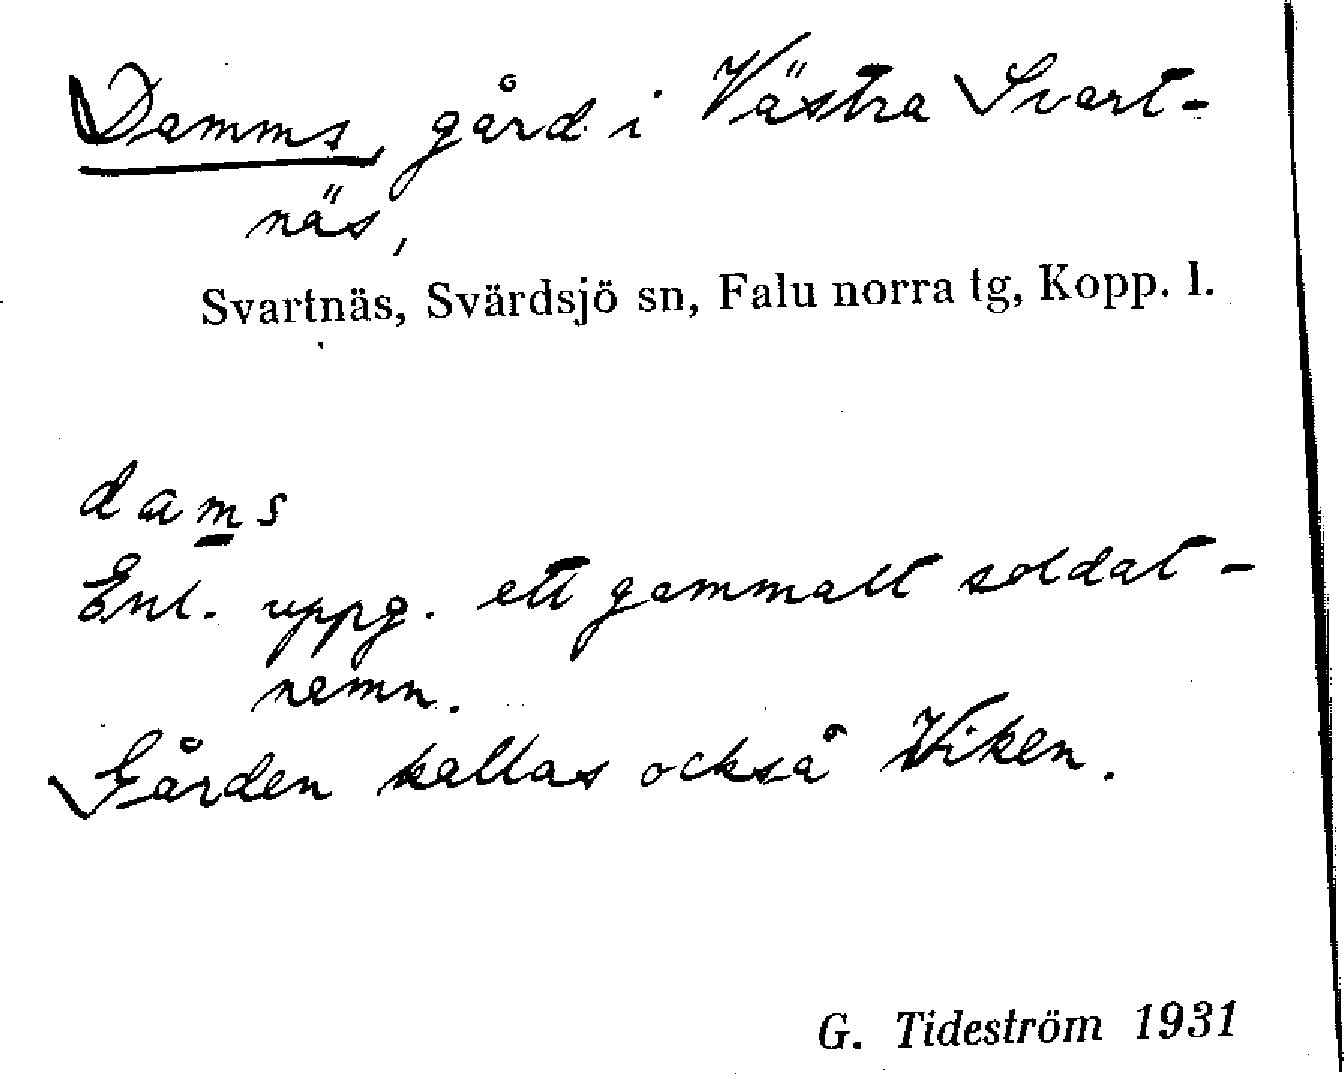 Damms, gård i Västra Svart-
näs,
Svartnäs, Svärdsjö sn, Falu norra tg, Kopp. l.
dams
Enl. uppg. ett gammalt soldat-
namn.
Gården kallas också Viken.
G. Tideström 1931